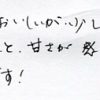 おいしいが、少し
と、甘さが
です!